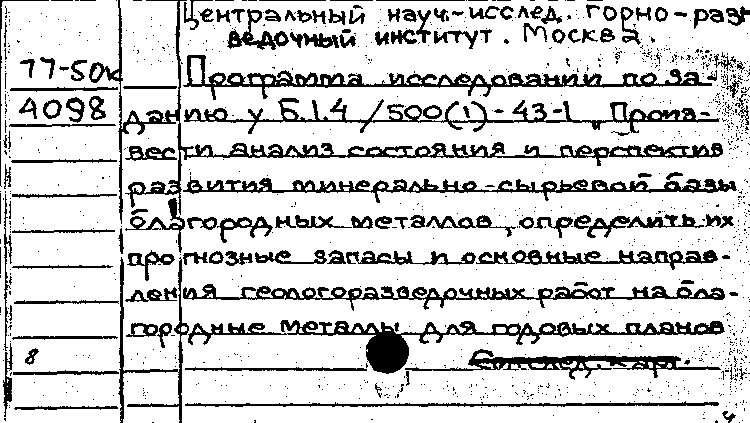 Центральный науч.-исслед. горно-раз-
ведочный институт. Москва.
77-50к Программа исследований по за-
4098 данию у Б.1.4 /500(1)-43-1 „Произ-
вести анализ состояния и перспектив
развития минерально-сырьевой базы
благородных металлов, определить их
прогнозные запасы и основные направ-
ления геологоразведочных работ на бла-
городные металлы для годовых планов
8